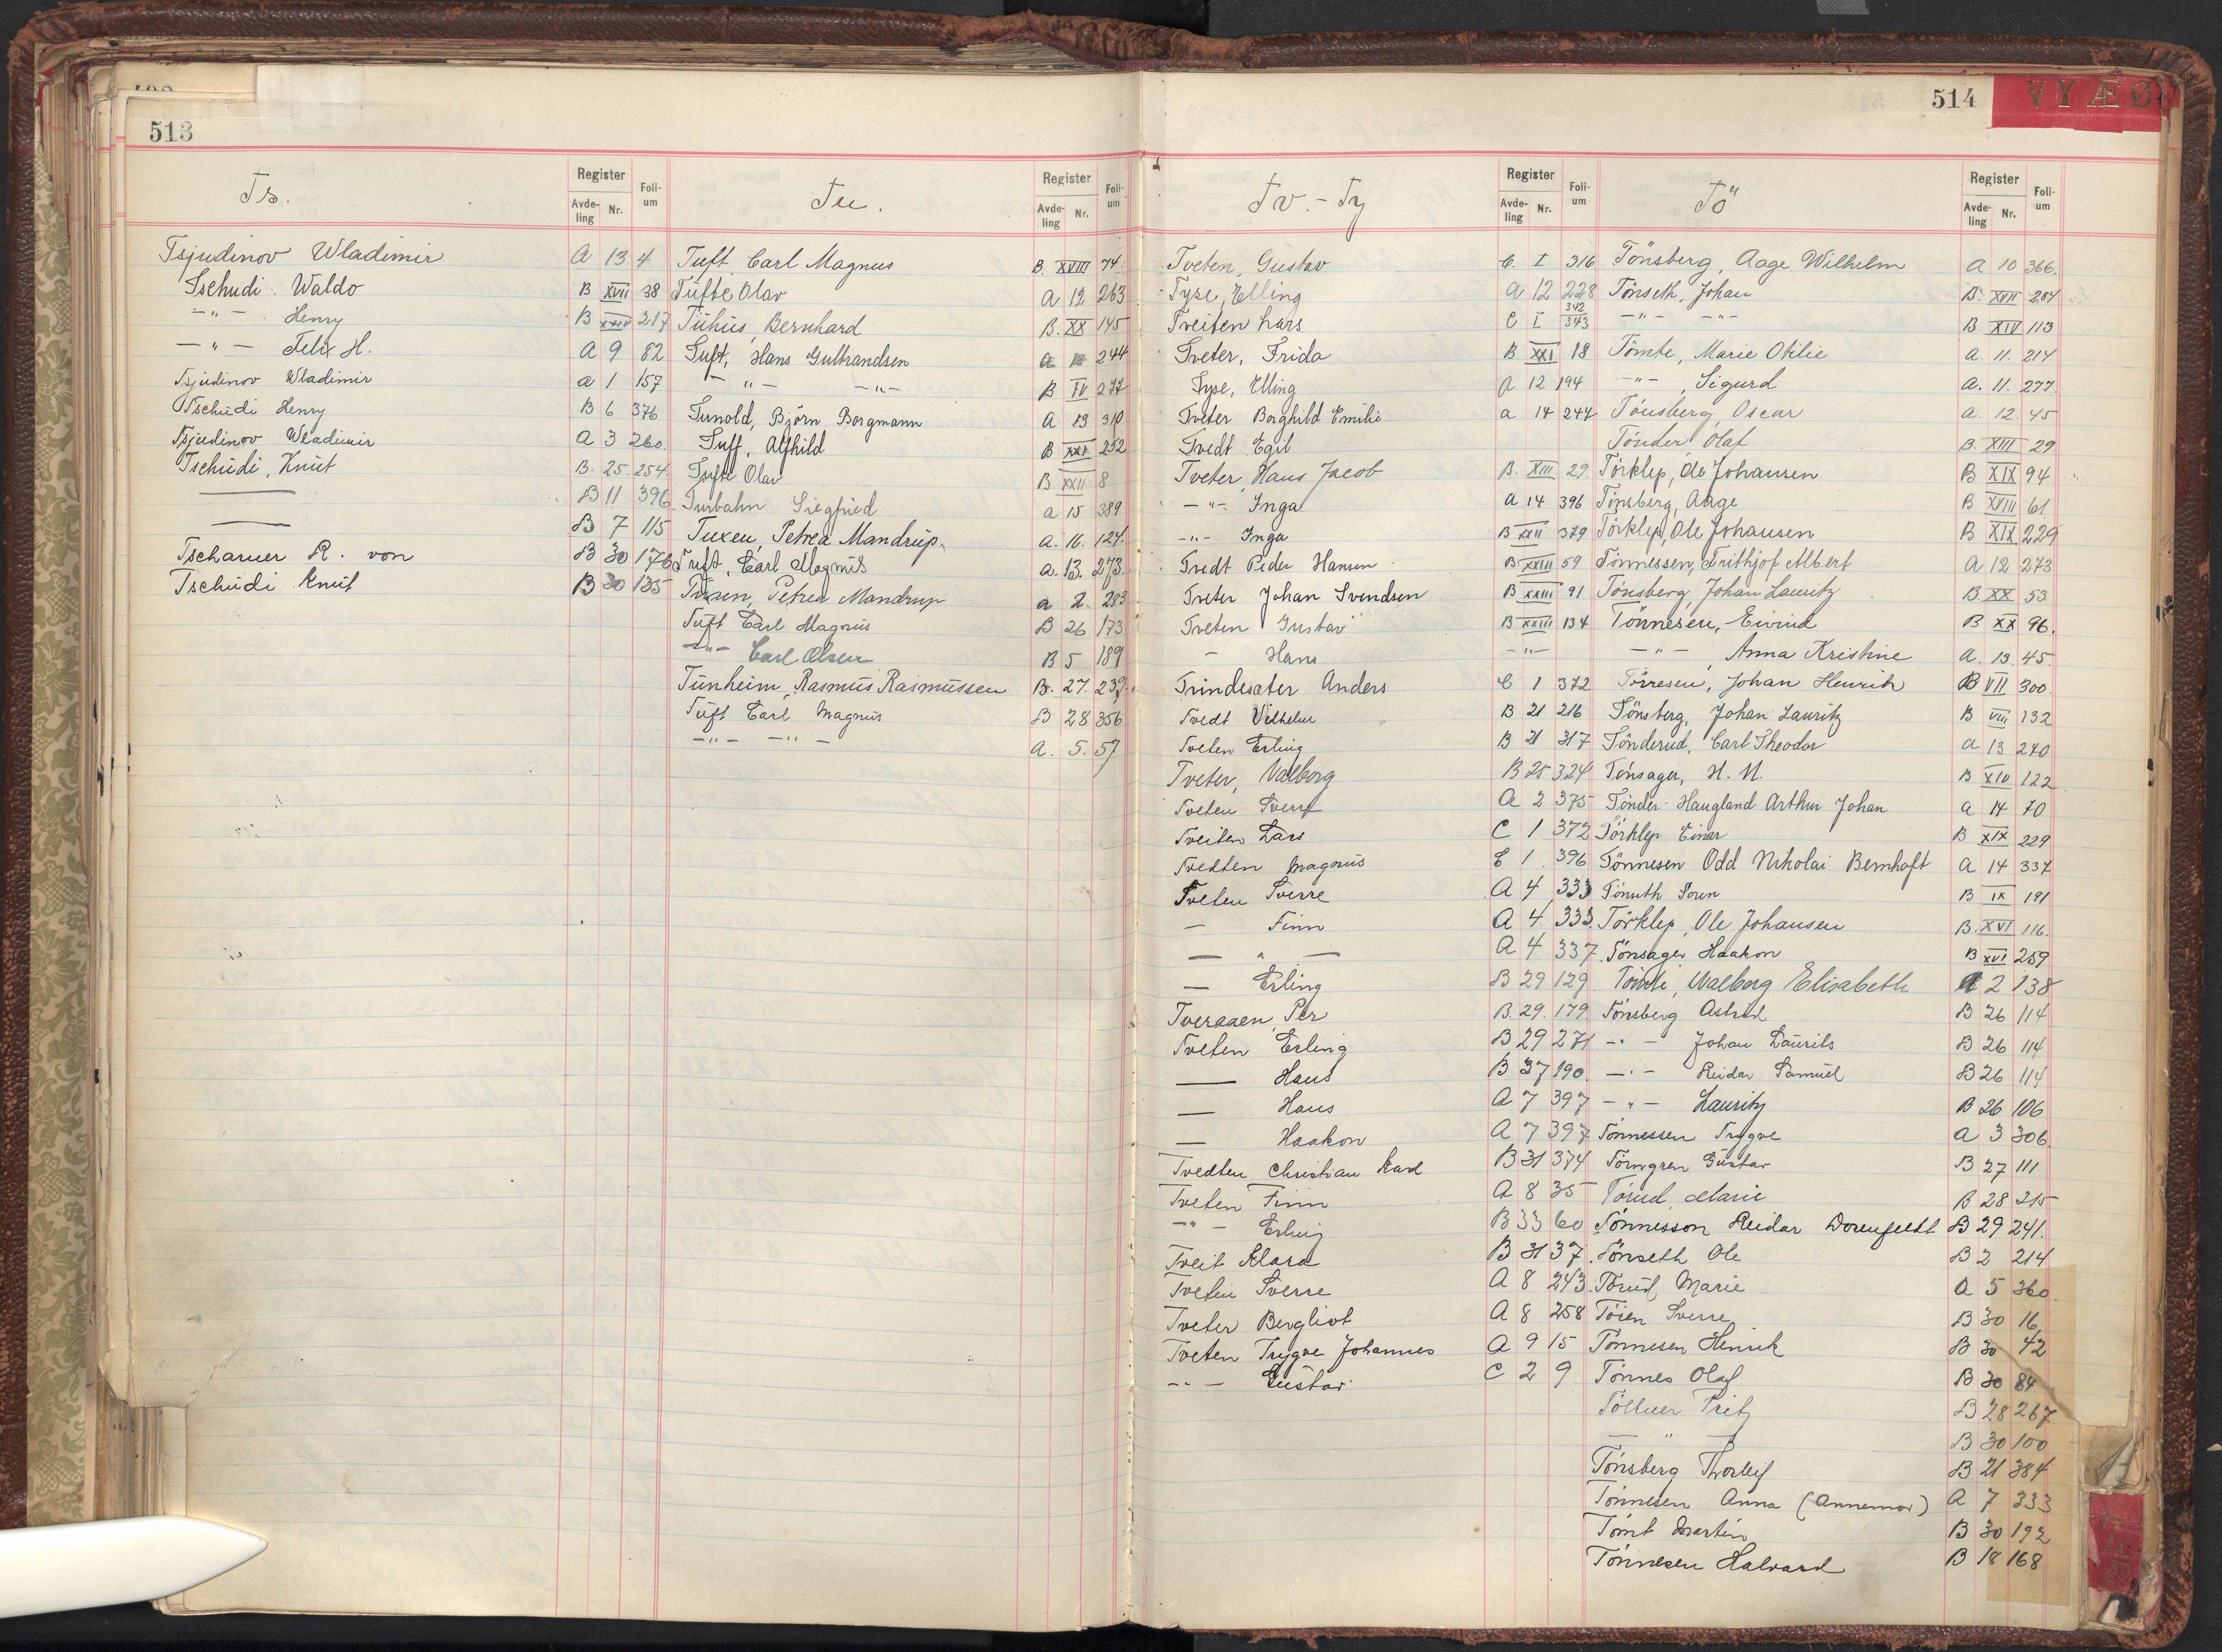 513
Ts.
Register
Avde-ling Nr. Foli-um
Tsjudinov Wladimir A 13 4
Tschudi Waldo B XVII 38
-"- Henry B XXIV 217
-"- Felix H. A 9 82
Tsjudinov Wladimir a 1 157
Tschudi Henry B 6 376
Tsjudinov Wladimir A 3 260.
Tschudi, Knut B. 25. 254.
B 11 396
B 7 115
Tscharner R. von B 30 176
Tschudi Knut B 30 135
Tu.
Register
Avde-ling Nr. Foli-um
Tuft, Carl Magnus B. XVIII 74.
Tufte Olav A 12 263
Tuhus, Bernhard B. XX 145
Tuft, Hans Gulbrandsen 244
-"- -"- B IV 277
Tunold, Björn Borgmann A 13 310
Tuff, Alfhild B XXI 252
Tufte Olav B XXII 8
Turbahn Siegfried a 15 389
Tuxen, Petrea Mandrup. a. 16. 124.
Tuft, Carl Magnus a. 13. 273.
Tuxen, Petrea Mandrup a 2. 283
Tuft Carl Magnus B 26 173
-"- Carl Olsen B 5 189
Tunheim, Rasmus Rasmussen B. 27. 239.
Tuft Carl Magnus B 28 356
-"- -"- A. 5. 57
514
V Y Æ Ø
Tv. - Ty
Register
Avde-ling Nr. Foli-um
Tveten, Gustav C. I 316
Tyse, Elling A 12 228
Tveiten Lars C I 342 343
Tveter, Frida B XXI 18
Tyse, Elling A 12 194
Tveter Borghild Emilie a 14 244
Tvedt Egil
Tveter, Hans Jacob B. XIII 29.
-"- Inga a 14 396
-"- Inga B XXII 379
Tvedt Peder Hansen B XXIII 59
Tveter Johan Svendsen B XXIII 91
Tveten Gustav B XXIII 134
- Hans -"-
Tvindesæter Anders C 1 372
Tvedt Vilhelm B 21 216
Tveten Erling B 21 317
Tveter, Valborg B 25 324
Tveten Sverre A 2 375
Tveiten Lars C 1 372
Tvedten Magnus C 1 396
Tveten Sverre A 4 333
- Finn A 4 333.
- " - A 4 337.
- Erling B 29 129
Tveraaen, Per B. 29. 179
Tveten Erling B 29 271
- Hans B 37 190.
- Hans A 7 397
- Haakon A 7 397
Tvedten Christian Karl B 31 374
Tveten Finn A 8 35
-"- Erling B 33 60
Tveit Klara B 31 37.
Tveten Sverre A 8 243.
Tveter Bergliot A 8 258
Tveten Trygve Johannes A 9 15
-"- Gustav C 2 9
Tö
Register
Avde-ling Nr. Foli-um
Tönsberg, Aage Wilhelm A 10 366.
Tönseth, Johan B. XVII 284
-"- -"- B. XIV 113
Tömte, Marie Otilie A. 11. 214
-"-, Sigurd A. 11. 277.
Tönsberg, Oscar A. 12. 45
Tönder Olaf B. XIII 29
Törklep, Ole Johansen B XIX 94
Tönsberg, Aage B XVIII 61.
Törklep, Ole Johansen B XIX 229
Tönnessen, Frithjof Albert A 12 273
Tönsberg, Johan Lauritz B. XX 53.
Tönnesen, Eivind B XX 96.
-"-, Anna Kristine A. 13. 45.
Törresen, Johan Henrik B VII 300.
Tönsberg, Johan Lauritz B VIII 132
Tönderud, Carl Theodor a 13 240
Tönsager, H. N. B XIV 122
Tönder-Haugland Arthur Johan a 14 70
Törklep Einar B XIX 229
Tönnesen Odd Nikolai Bernhoft A 14 337
Tönseth Soren B IX 191
Törklep, Ole Johansen B. XVI 116.
Tönsager Haakon B XVI 259
Tömte, Valborg Elisabeth A 2 138
Tönsberg Astrid B 26 114
-"- Johan Laurits B 26 114
-"- Reidar Samuel B 26 114
-"- Lauritz B 26 106
Tönnessen Trygve A 3 306.
Törngren Gustav B 27 111
Törud, Marie B 28 215
Tönnesson Reidar Dorenfeldt B 29 241.
Tönseth Ole B 2 214
Törud, Marie A 5 360.
Töien Sverre B 30 16
Tönnesen Henrik B 30 42
Tönnes Olaf B 30 84
Töllner Fritz B 28 267
- " - B 30 100
Tönsberg Thorleif B 21 384
Tönnesen Anna (Annemor) A 7 333
Tömt Martin B 30 192
Tönnesen Halvard B 18 168